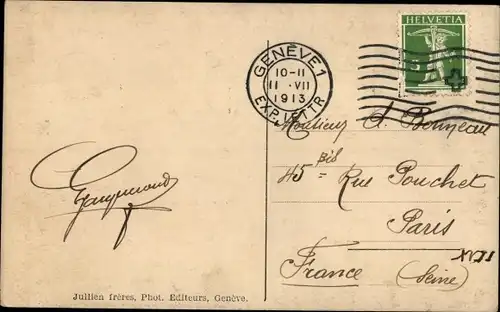 HELVETIA
5
GENÈVE 1
10-11
11 · VII
1913
EXP. LETTR
Monsieur A. Bonneau
45 bis Rue Pouchet
Paris
XVII
France (Seine)
Jullien frères, Phot. Editeurs, Genève.